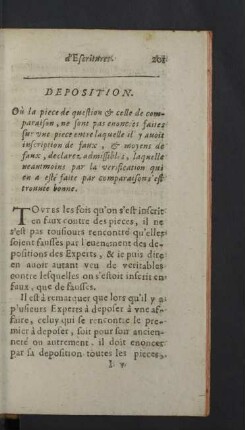 d'Escritures. 201
DEPOSITION.
Où la piece de question & celle de com-
paraison, ne sont pas enoncées faites
sur vne piece entre laquelle il y auoit
inscription de faux, & moyens de
faux, declarez admissibles, laquelle
neantmoins par la verification qui
en a esté faite par comparaisons est
trouuée bonne.
TOVTES les fois qu'on s'est inscrit
en faux contre des pieces, il ne
s'est pas tousiours rencontré qu'elles
soient fausses par l'euenement des de-
positions des Experts, & ie puis dire
en auoir autant veu de veritables
contre lesquelles on s'estoit inscrit en
faux, que de fausses.
Il est à remarquer que lors qu'il y a
plusieurs Experts à deposer à vne af-
faire, celuy qui se rencontre le pre-
mier à deposer, soit pour son ancien-
neté ou autrement, il doit enoncer
par sa deposition toutes les pieces,
I v